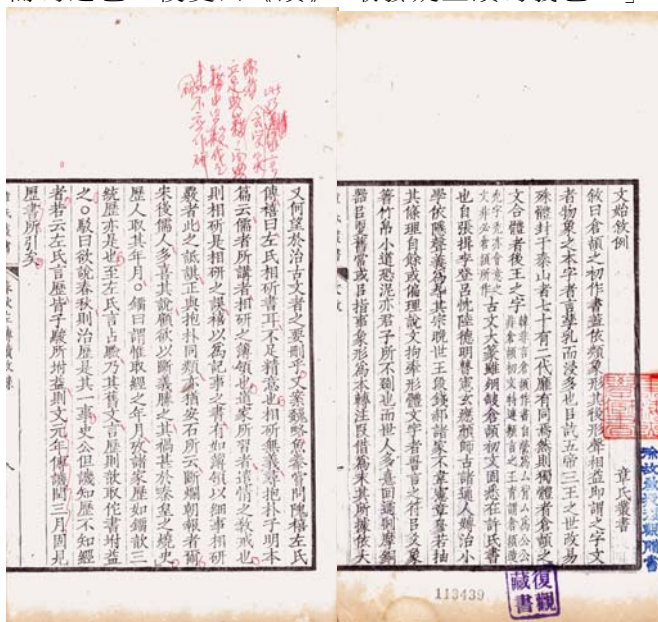 文始敘例
章氏叢書
敘曰倉頡之初作書蓋依類象形其後形聲相益即謂之字文
者物象之本字者言孳乳而浸多也㠯訖五帝三王之世改易
殊體封于泰山者七十有二代靡有同焉然則獨體者倉頡之
文合體者後王之字
古文大篆雖殘缺倉頡初文固悉在許氏書
也自張揖李登呂忱陸德明曹憲玄應顏師古諸通人專治小
學依隱聲義為其宗晚世王段錢郝諸家不韋憲章若抽
其條理自餘或偏理說文拘牽形體文字者書言之符㠯爻象
箸竹帛小道恐泥亦君子所不剟也而世人多憙回遹剽摩銅
器㠯更舊常或㠯指事象形為本轉注叚借為末其所據依大
復觀藏書
113439
又何望於治古文者之要刪乎文案魏略魚豢嘗問隗禧左氏
傳禧曰左氏相斫書耳不足精意也相斫無義尋抱扑子明本
篇云儒者所講者相研之薄領也道家所習者遣情之教戒也
則相斫是相研之誤禧以為記事之書有如簿領以細事相研
覈者此之詆諆正與抱扑同類亦猶安石所云斷爛朝報者爾
宋後儒人多喜其說顧欲以斷義勝之其禍甚於秦皇之燒史
歷人取其年月○鐊曰謂惟取經之年月於諸家歷如鐊歆三
統歷亦是也至左氏言占驗乃其舊文言歷則歆取佗書坿益
之○駁曰欲說春秋則治歷是其一事史公但譏知歷不知經
者若云左氏言歷皆子駿所坿益則文元年傳譏閏三月固見
歷書所引矣